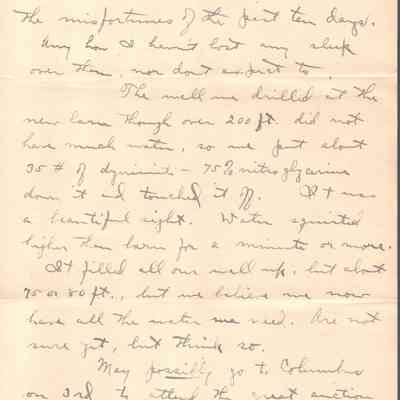 the misfortunes of the past ten days.
Any how I haven't lost any sleep
over them, nor dont expect to.
The well we drilled at the
new barn though over 200 ft. did not
have much water, so we put about
35 # of dynimite - 75% nitroglycerine
down it and touched it off. It was
a beautiful sight. Water squirted
higher than barn for a minute or more.
It filled all our well up, but about
75 or 80 ft., but we believe we now
have all the water we need. Are not
sure yet, but think so.
May possibly go to Columbus
on 3rd to attend the great auction